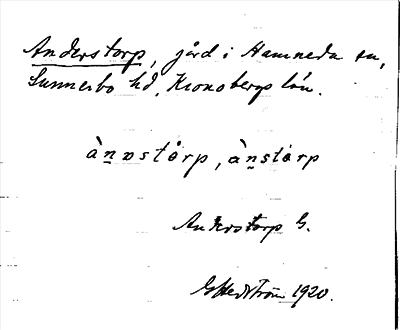 Anderstorp, gård i Hamneda sn,
Sunnerbo hd, Kronobergs län.
ànɒstårp, ànstårp
Anderstorp G.
G Hedström 1920.